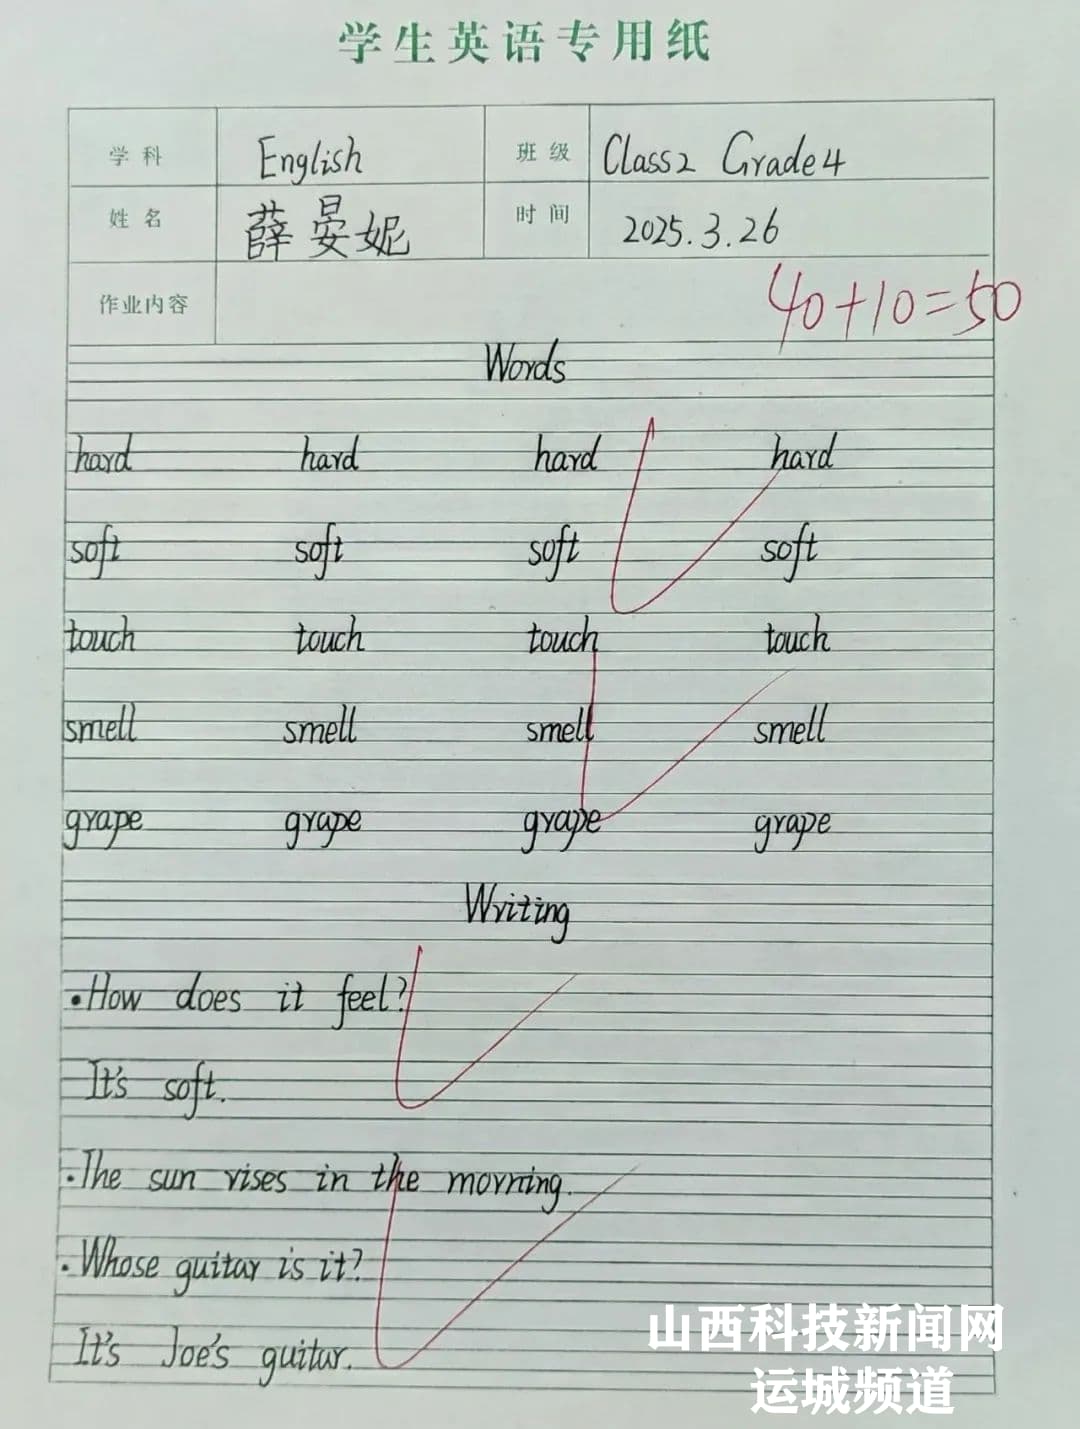 学生英语专用纸
学科 English 班级 Class2 Grade4
姓名 薛晏妮 时间 2025.3.26
作业内容
40+10=50
Words
hard hard hard hard
soft soft soft soft
touch touch touch touch
smell smell smell smell
grape grape grape grape
Writing
•How does it feel?
It's soft.
•The sun rises in the morning.
•Whose guitar is it?
It's Joe's guitar.
山西科技新闻网
运城频道